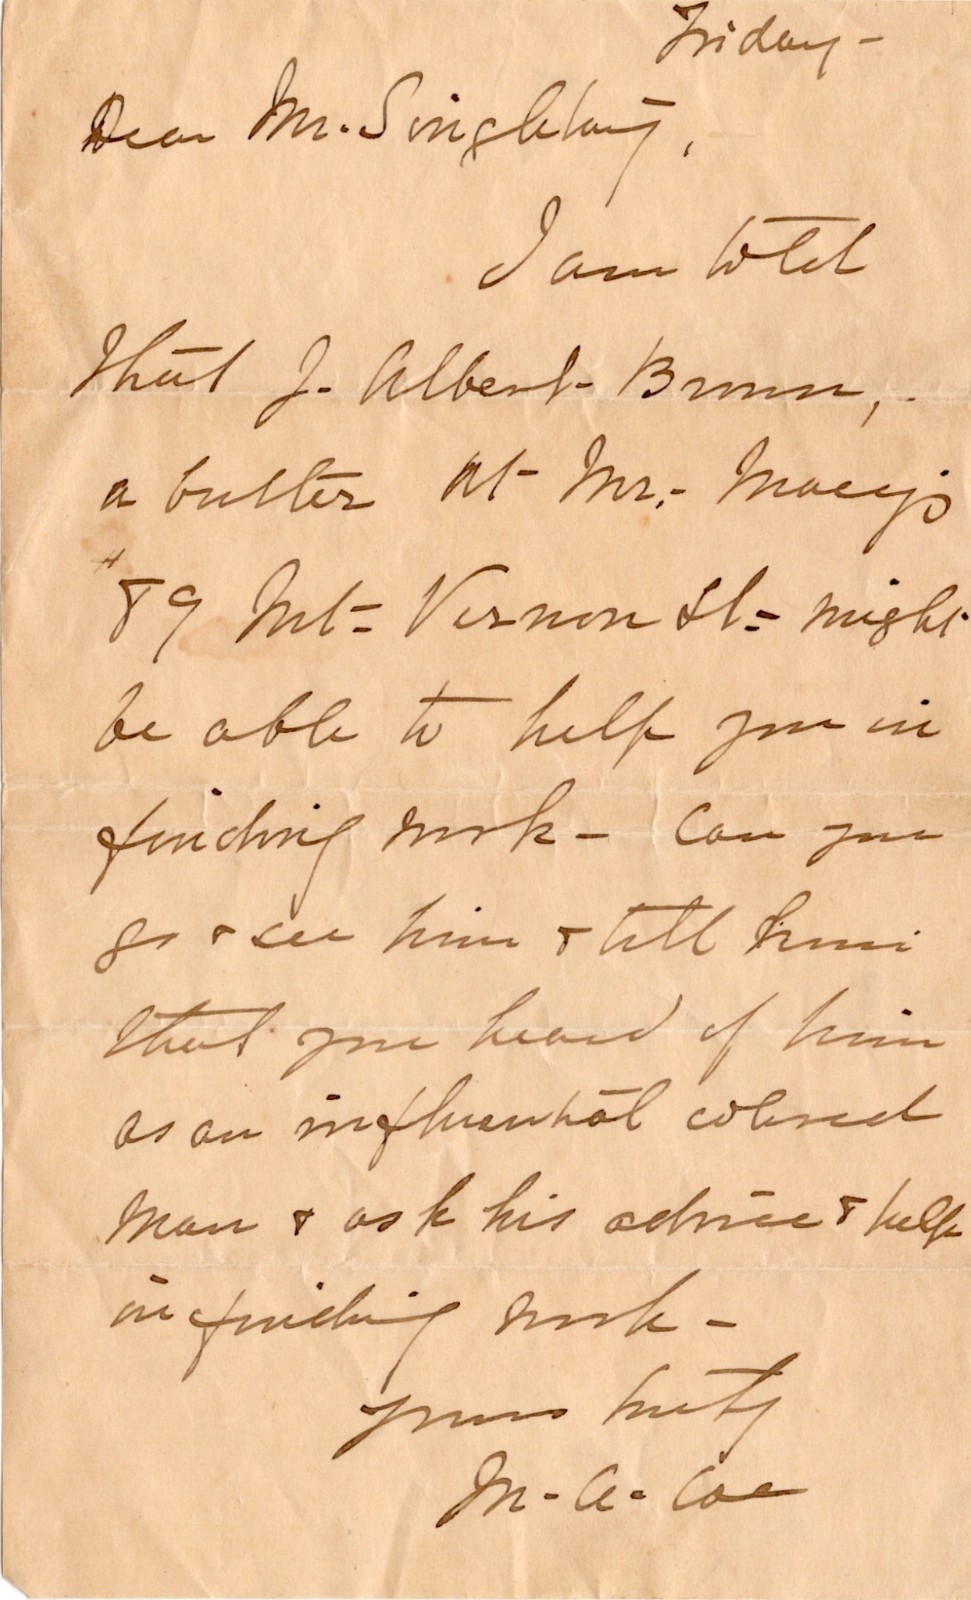 Friday -
Dear Mr. Singletary,
I am told
that J. Albert Brown,
a butler at Mr. Macy's
89 Mt. Vernon St. might
be able to help you in
finding work - Can you
go & see him & tell him
that you heard of him
as an influential colored
man & ask his advice & help
in finding work -
yours truly
M. A. Coe